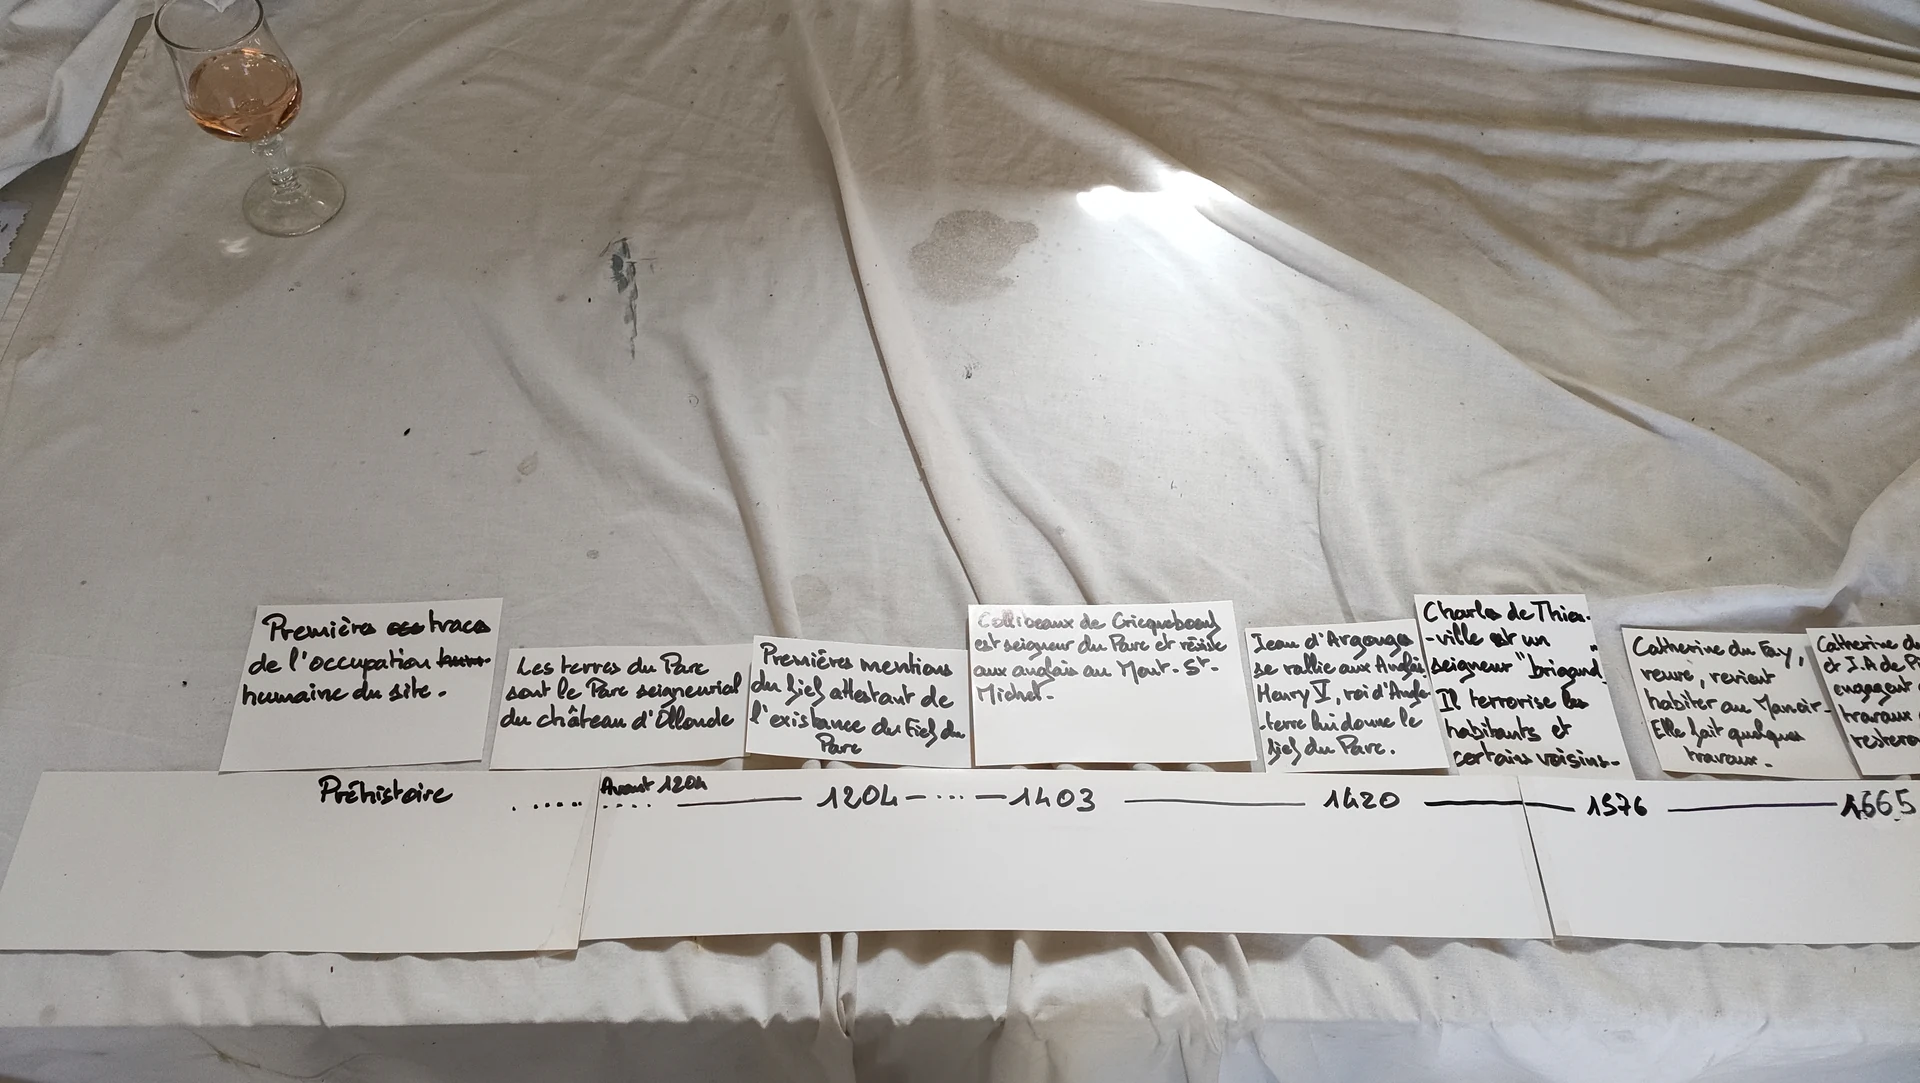 Premières traces
de l'occupation
humaine du site.
Les terres du Parc
sont le Parc seigneurial
du château d'Ollonde
Premières mentions
du fief attestant de
l'existence du Fief du
Parc
Collibeaux de Cricquebœuf
est seigneur du Parc et résiste
aux anglais au Mont-St-
Michel-
Jean d'Argouges
se rallie aux Anglais
Henry V, roi d'Angle-
-terre lui donne le
fief du Parc.
Charles de Thieu-
-ville est un
seigneur "brigand"
Il terrorise les
habitants et
certains voisins-
Catherine du Fay,
veuve, revient
habiter au Manoir-
Elle fait quelques
travaux.
Catherine du
et J.A de
engagent
travaux
Préhistoire ...... Avant 1204
.... 1204 - ... - 1403 1420 1576 1665